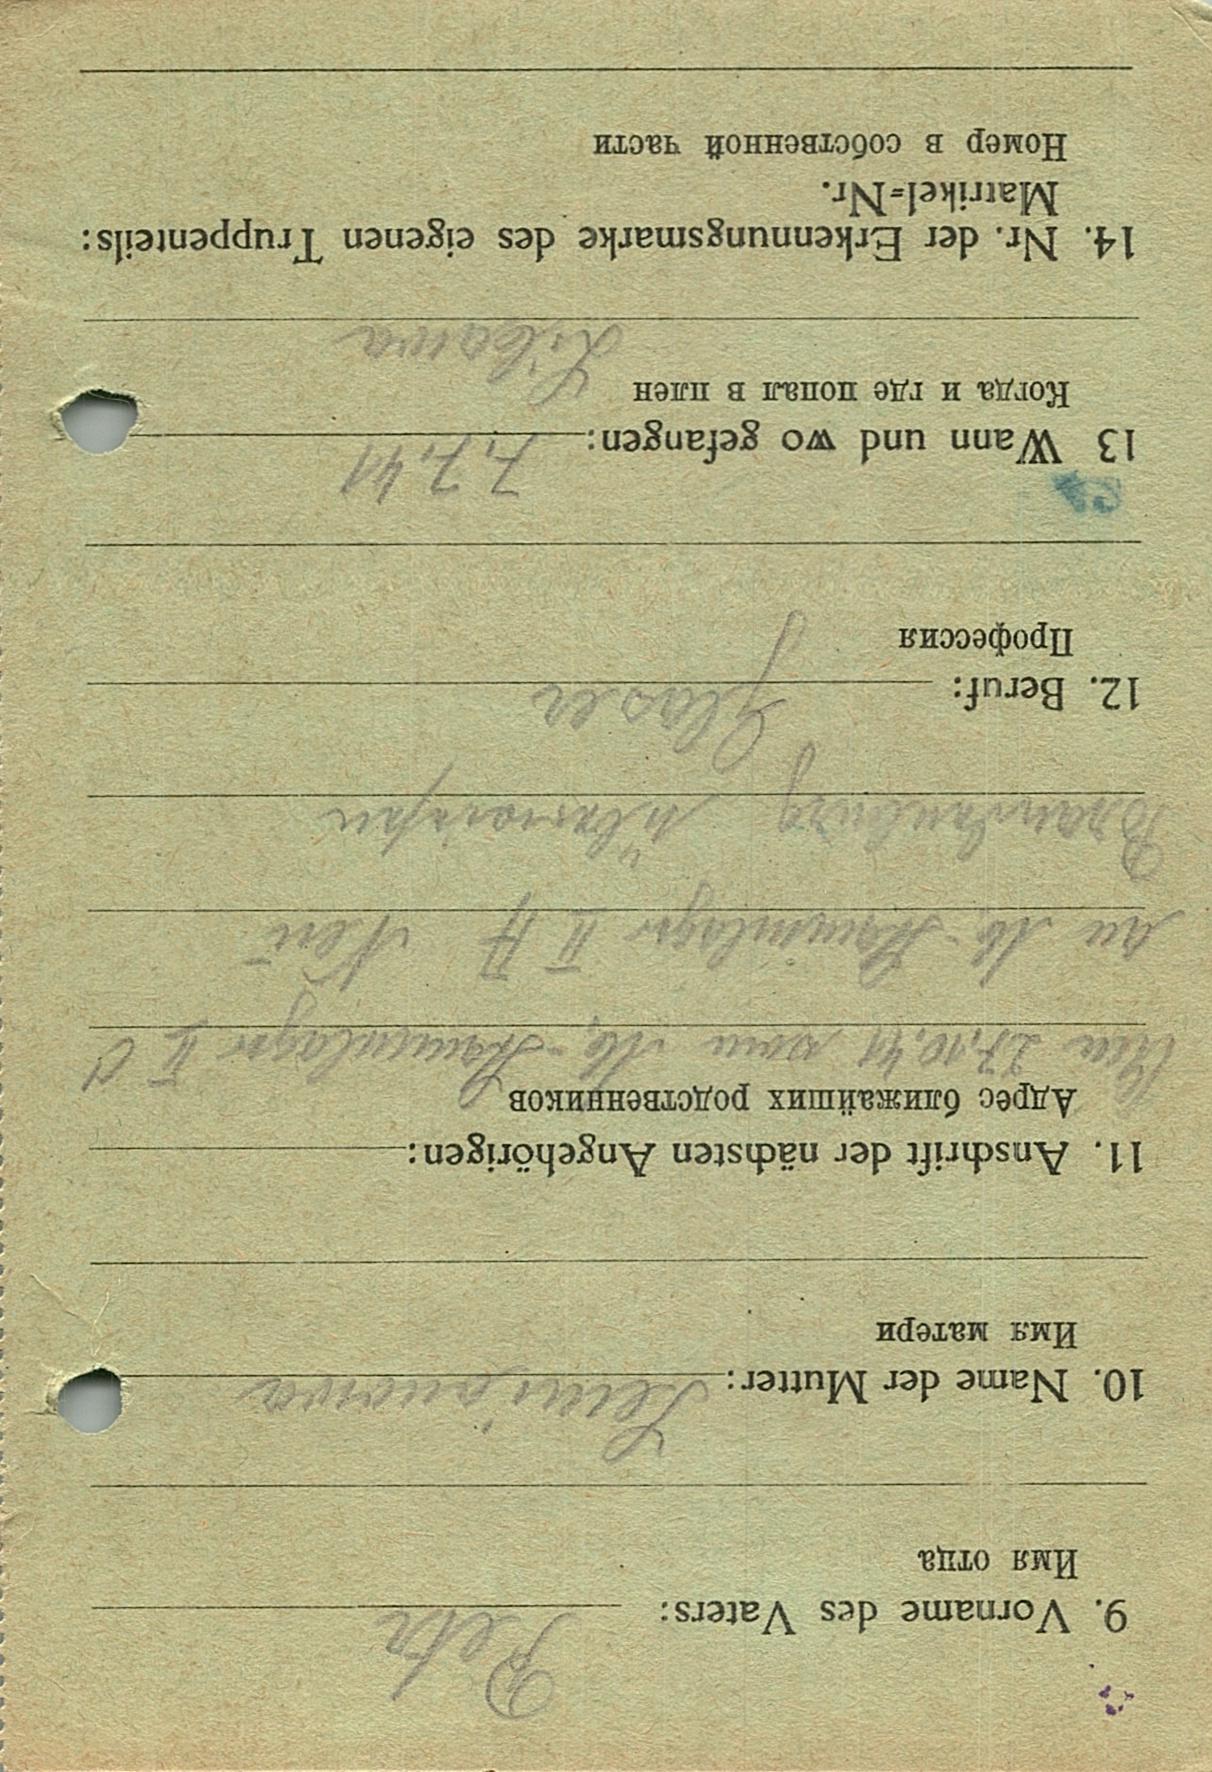 9. Vorname des Vaters: Petr
Имя отца
10. Name der Mutter: Semjonowa
Имя матери
11. Anschrift der nächsten Angehörigen:
Адрес ближайших родственников
27.10.41 vom M.-Stammlager II C
an M.-Stammlager II A Neu
Brandenburg überwiesen
12. Beruf: Glaser
Профессия
13 Wann und wo gefangen: 7.7.41
Когда и где попал в плен
Libawa
14. Nr. der Erkennungsmarke des eigenen Truppenteils:
Matrikel=Nr.
Номер в собственной части